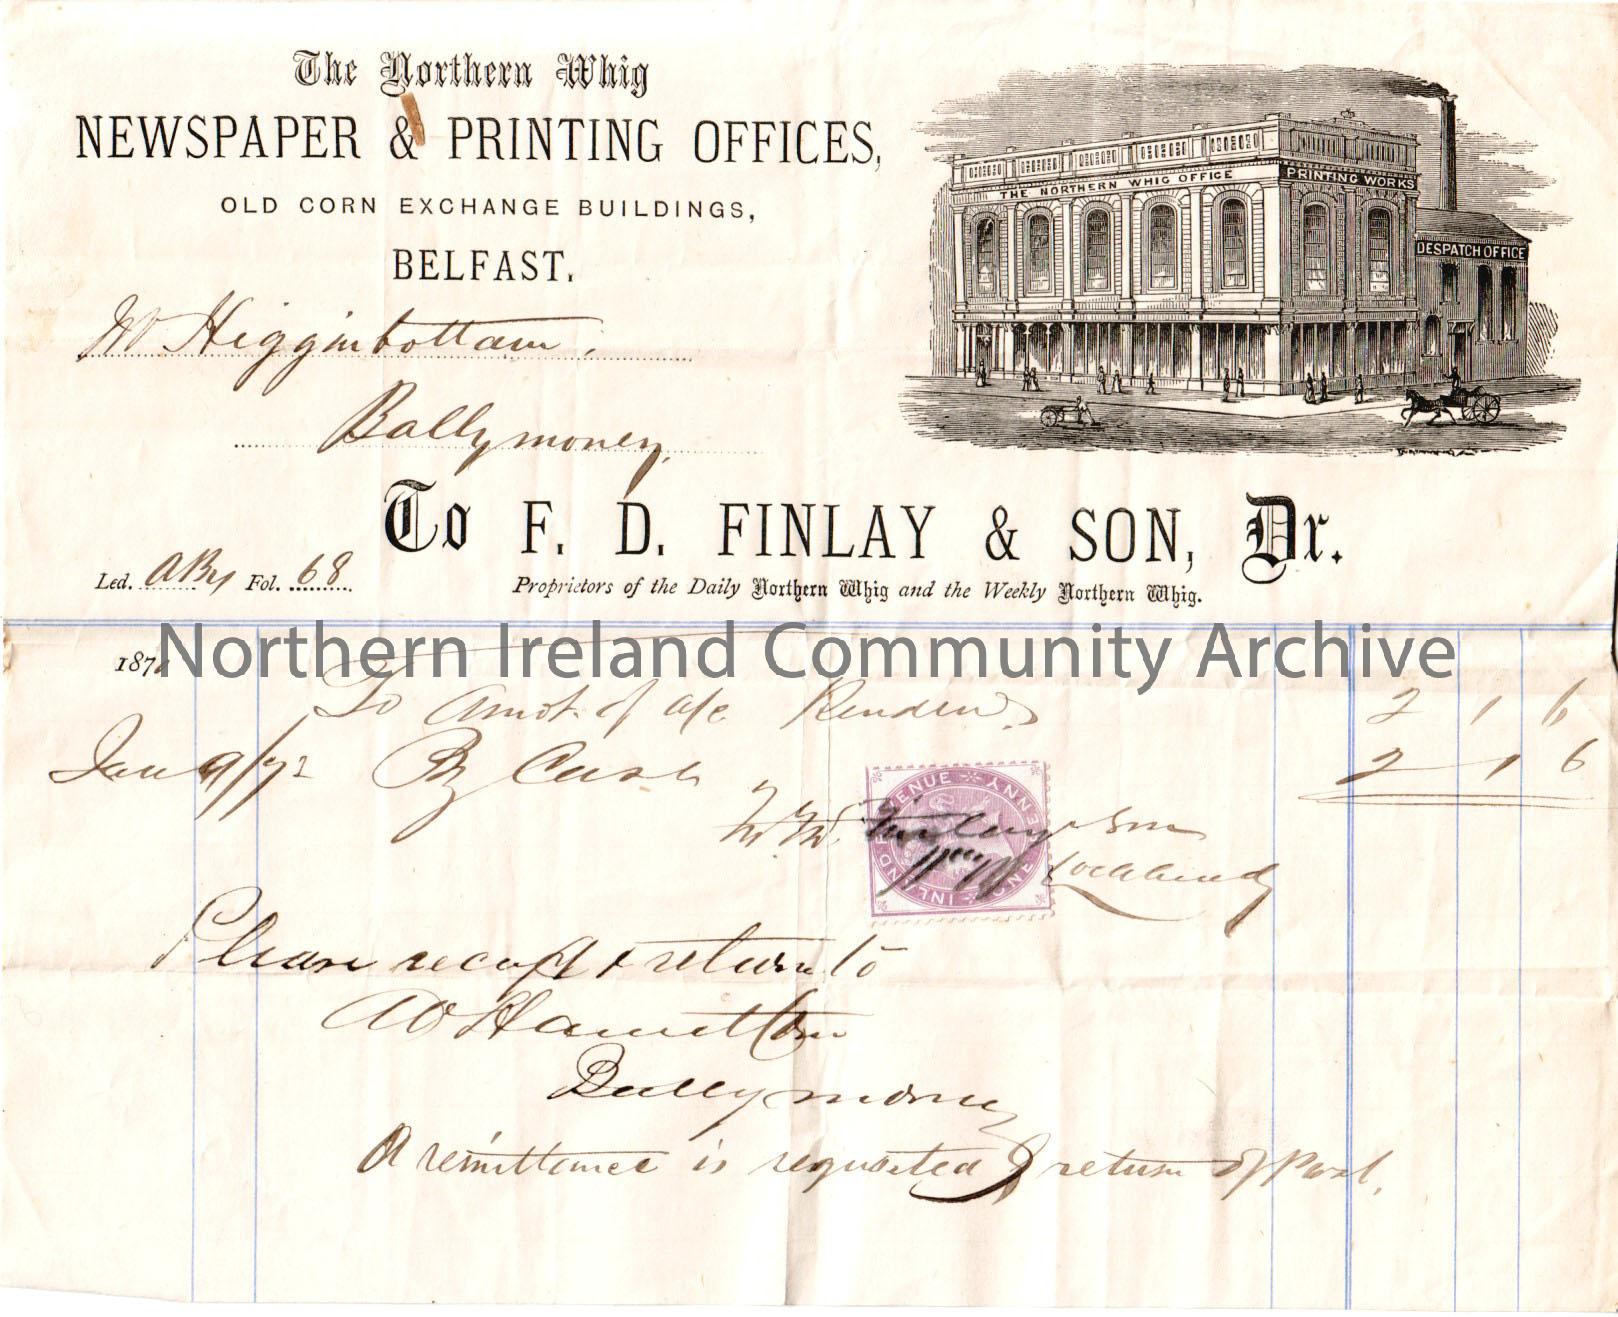 The Northern Whig
NEWSPAPER & PRINTING OFFICES,
OLD CORN EXCHANGE BUILDINGS,
BELFAST.
THE NORTHERN WHIG OFFICE
PRINTING WORKS
DESPATCH OFFICE
Higginbottam.
Ballymoney,
To F. D. FINLAY & SON, Dr.
Led. Fol. 68
Proprietors of the Daily Northern Whig and the Weekly Northern Whig.
Northern Ireland Community Archive
187
To Amot. of a/c Rendered 2 1 6
Jan 9/72 By Cash 2 1 6
Finlay & Son
INLAND REVENUE ONE PENNY
Please receipt & return to
W Hamilton
Ballymoney
A remittance is requested return of Post.